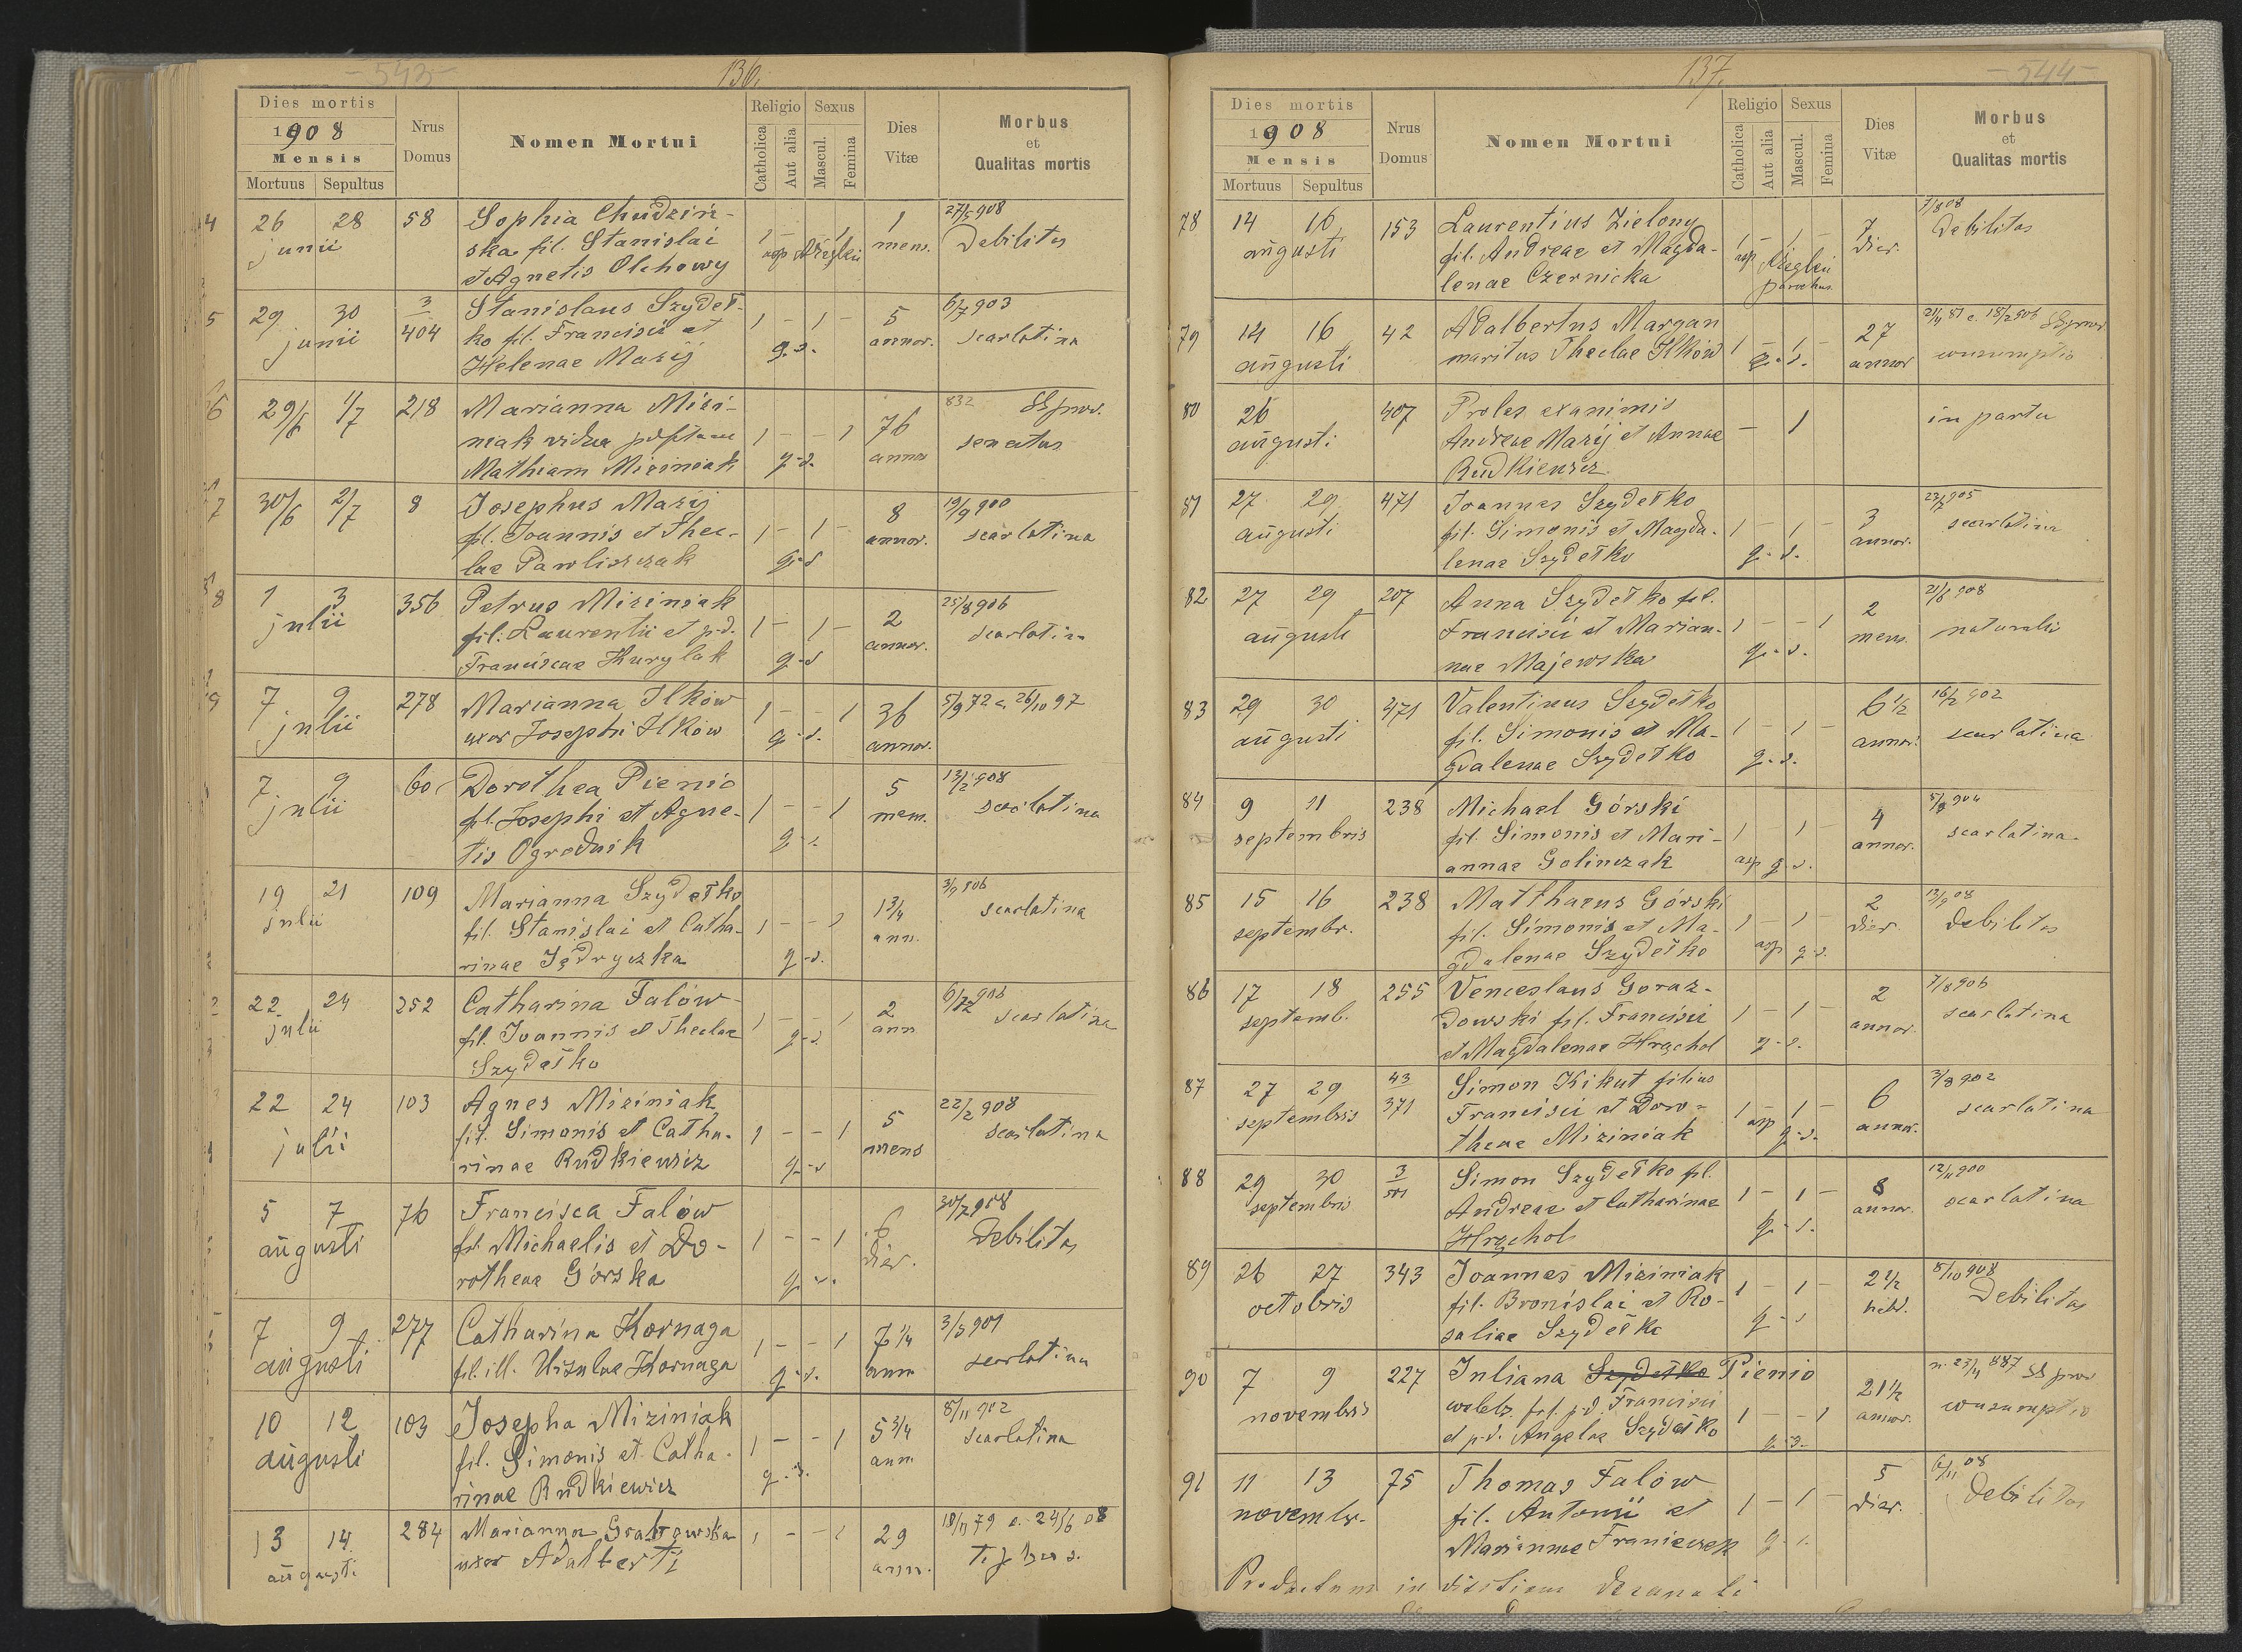 -543-
136.
Dies mortis
1908
Mensis
Mortuus Sepultus
Nrus
Domus
Nomen Mortui
Religio Sexus
Catholica
Aut alia
Mascul.
Femina
Dies
Vitæ
Morbus
et
Qualitas mortis
4 26 28 58 Sophia Chudziń- 1 - - 1 1 27/5 908
junii ska fil. Stanislai mens. Debilitas
et Agnetis Olchowy
5 29 30 3/404 Stanislaus Szydeł- 1 - 1 - 5 6/7 903
junii ko fil. Francisci et annor. scarlatina
Helenae Mazij q.s.
6 29/6 1/7 218 Marianna Mizi- 832 SSprov.
niak vidua post 1 - - 1 76 senectus
Mathiam Miziniak q-s. annor
7 30/6 2/7 8 Josephus Mazij 8 19/9 900
fil. Joannis et Thec- 1 - 1 - annor. scarlatina
lae Pawliszczak q-s
8 1 3 356 Petrus Miziniak 2 25/8 906
julii fil. Laurentii et p.d. 1 - 1 - annor. scarlatin
Franciscae Hurylak q-s
9 7 9 278 Marianna Ilków 1 - - 1 36 5/9 72 c. 26/10 97
julii uxor Josephi Ilków q-s. annor.
7 9 60 Dorothea Pienio 5 13/2 908
julii fil. Josephi et Agne- 1 - - 1 mens. scarlatina
tis Ogrodnik q-s.
19 21 109 Marianna Szydełko 1 3/4 906
julii fil. Stanislai et Catha- 1 - - 1 ann. scarlatina
rinae Jędryczka q-s.
22 24 252 Catharina Falów 2 906
julii fil. Joannis et Theclae 1 - - 1 ann scarlatina
Szydełko q-s.
22 24 103 Agnes Miziniak 5 22/2 908
julii fil. Simonis et Catha- 1 - - 1 mens scarlatina
rinae Rudkiewicz q-s
5 7 76 Francisca Falów 6 30/7 908
augusti fil. Michaelis et Do- 1 - - 1 dier. Debilitas
rotheae Górska q-s.
7 9 277 Catharina Kornaga 1 - - 1 7 1/4 3/5 901
augusti fil. ill. Ursulae Kornaga q-s. ann scarlatina
10 12 103 Josepha Miziniak 5 3/4 8/11 902
augusti fil. Simonis et Catha- 1 - - 1 ann scarlatina
rinae Rudkiewicz q-s.
13 14 284 Marianna Grabowska 1 - - 1 29 18/11 79 c. 24/6 08
augusti uxor Adalberti ann. Typhus.
137.
-544-
Dies mortis
1908
Mensis
Mortuus Sepultus
Nrus
Domus
Nomen Mortui
Religio Sexus
Catholica
Aut alia
Mascul.
Femina
Dies
Vitæ
Morbus
et
Qualitas mortis
78 14 16 153 Laurentius Zielony 7 7/8 08
augusti fil. Andreae et Magda- 1 - 1 - dier. Debilitas
lenae Czernicka parochus
79 14 16 42 Adalbertus Margan 27 c. 18/2 906 SSprov.
augusti maritus Theclae Ilków 1 - 1 - annor consumptio
q-s.
80 26 407 Proles exanimis in partu
augusti Andreae Mazij et Annae - 1
Rudkiewicz
81 27 29 471 Joannes Szydełko 3 905
augusti fil. Simonis et Magda- 1 - 1 - annor. scarlatina
lenae Szydełko q-s.
82 27 29 207 Anna Szydełko fil. 2 21/6 908
augusti Francisci et Marian- 1 - - 1 mens. naturalis
nae Majewska q-s.
83 29 30 471 Valentinus Szydełko 6 1/2 16/2 902
augusti fil. Simonis et Ma- 1 - 1 - annor. scarlatina
gdalenae Szydełko q-s.
84 9 11 238 Michael Górski 4 904
septembris fil. Simonis et Mari- 1 1 - annor. scarlatina
annae Golinczak asp q s.
85 15 16 238 Matthaeus Górski 2 13/9 08
septembr. fil. Simonis et Ma- 1 - 1 - dier. Debilitas
gdalenae Szydełko asp q-s.
86 17 18 255 Venceslaus Goraz- 2 7/8 906
septemb. dowski fil. Francisci 1 - 1 - annor. scarlatina
et Magdalenae Hręchol q-s.
87 27 29 43/371 Simon Kikut filius 6 3/8 902
septembris Francisci et Doro- 1 - 1 - annor. scarlatina
theae Miziniak asp q-s.
88 29 30 3/501 Simon Szydełko fil. 8 12/11 900
septembris Andreae et Catharinae 1 - 1 - annor. scarlatina
Hręchol q-s.
89 26 27 343 Joannes Miziniak 1 - 1 - 2 1/2 8/10 908
octobris fil. Bronislai et Ro- hebd. Debilitas
saliae Szydełko q-s
90 7 9 227 Juliana Szydełko Pienio 21 1/2 n. 23/4 887 SS prov
novembris coelebs fil. p.d. Francisci 1 - - 1 annor. consumptio
et p.d. Angelae Szydełko q-s.
91 11 13 75 Thomas Falów 5 6/11 08
novembr. fil. Antonii et 1 - 1 - dier. Debilitas
Mariannae Franiewek q-s.
Productum in visitione decanali